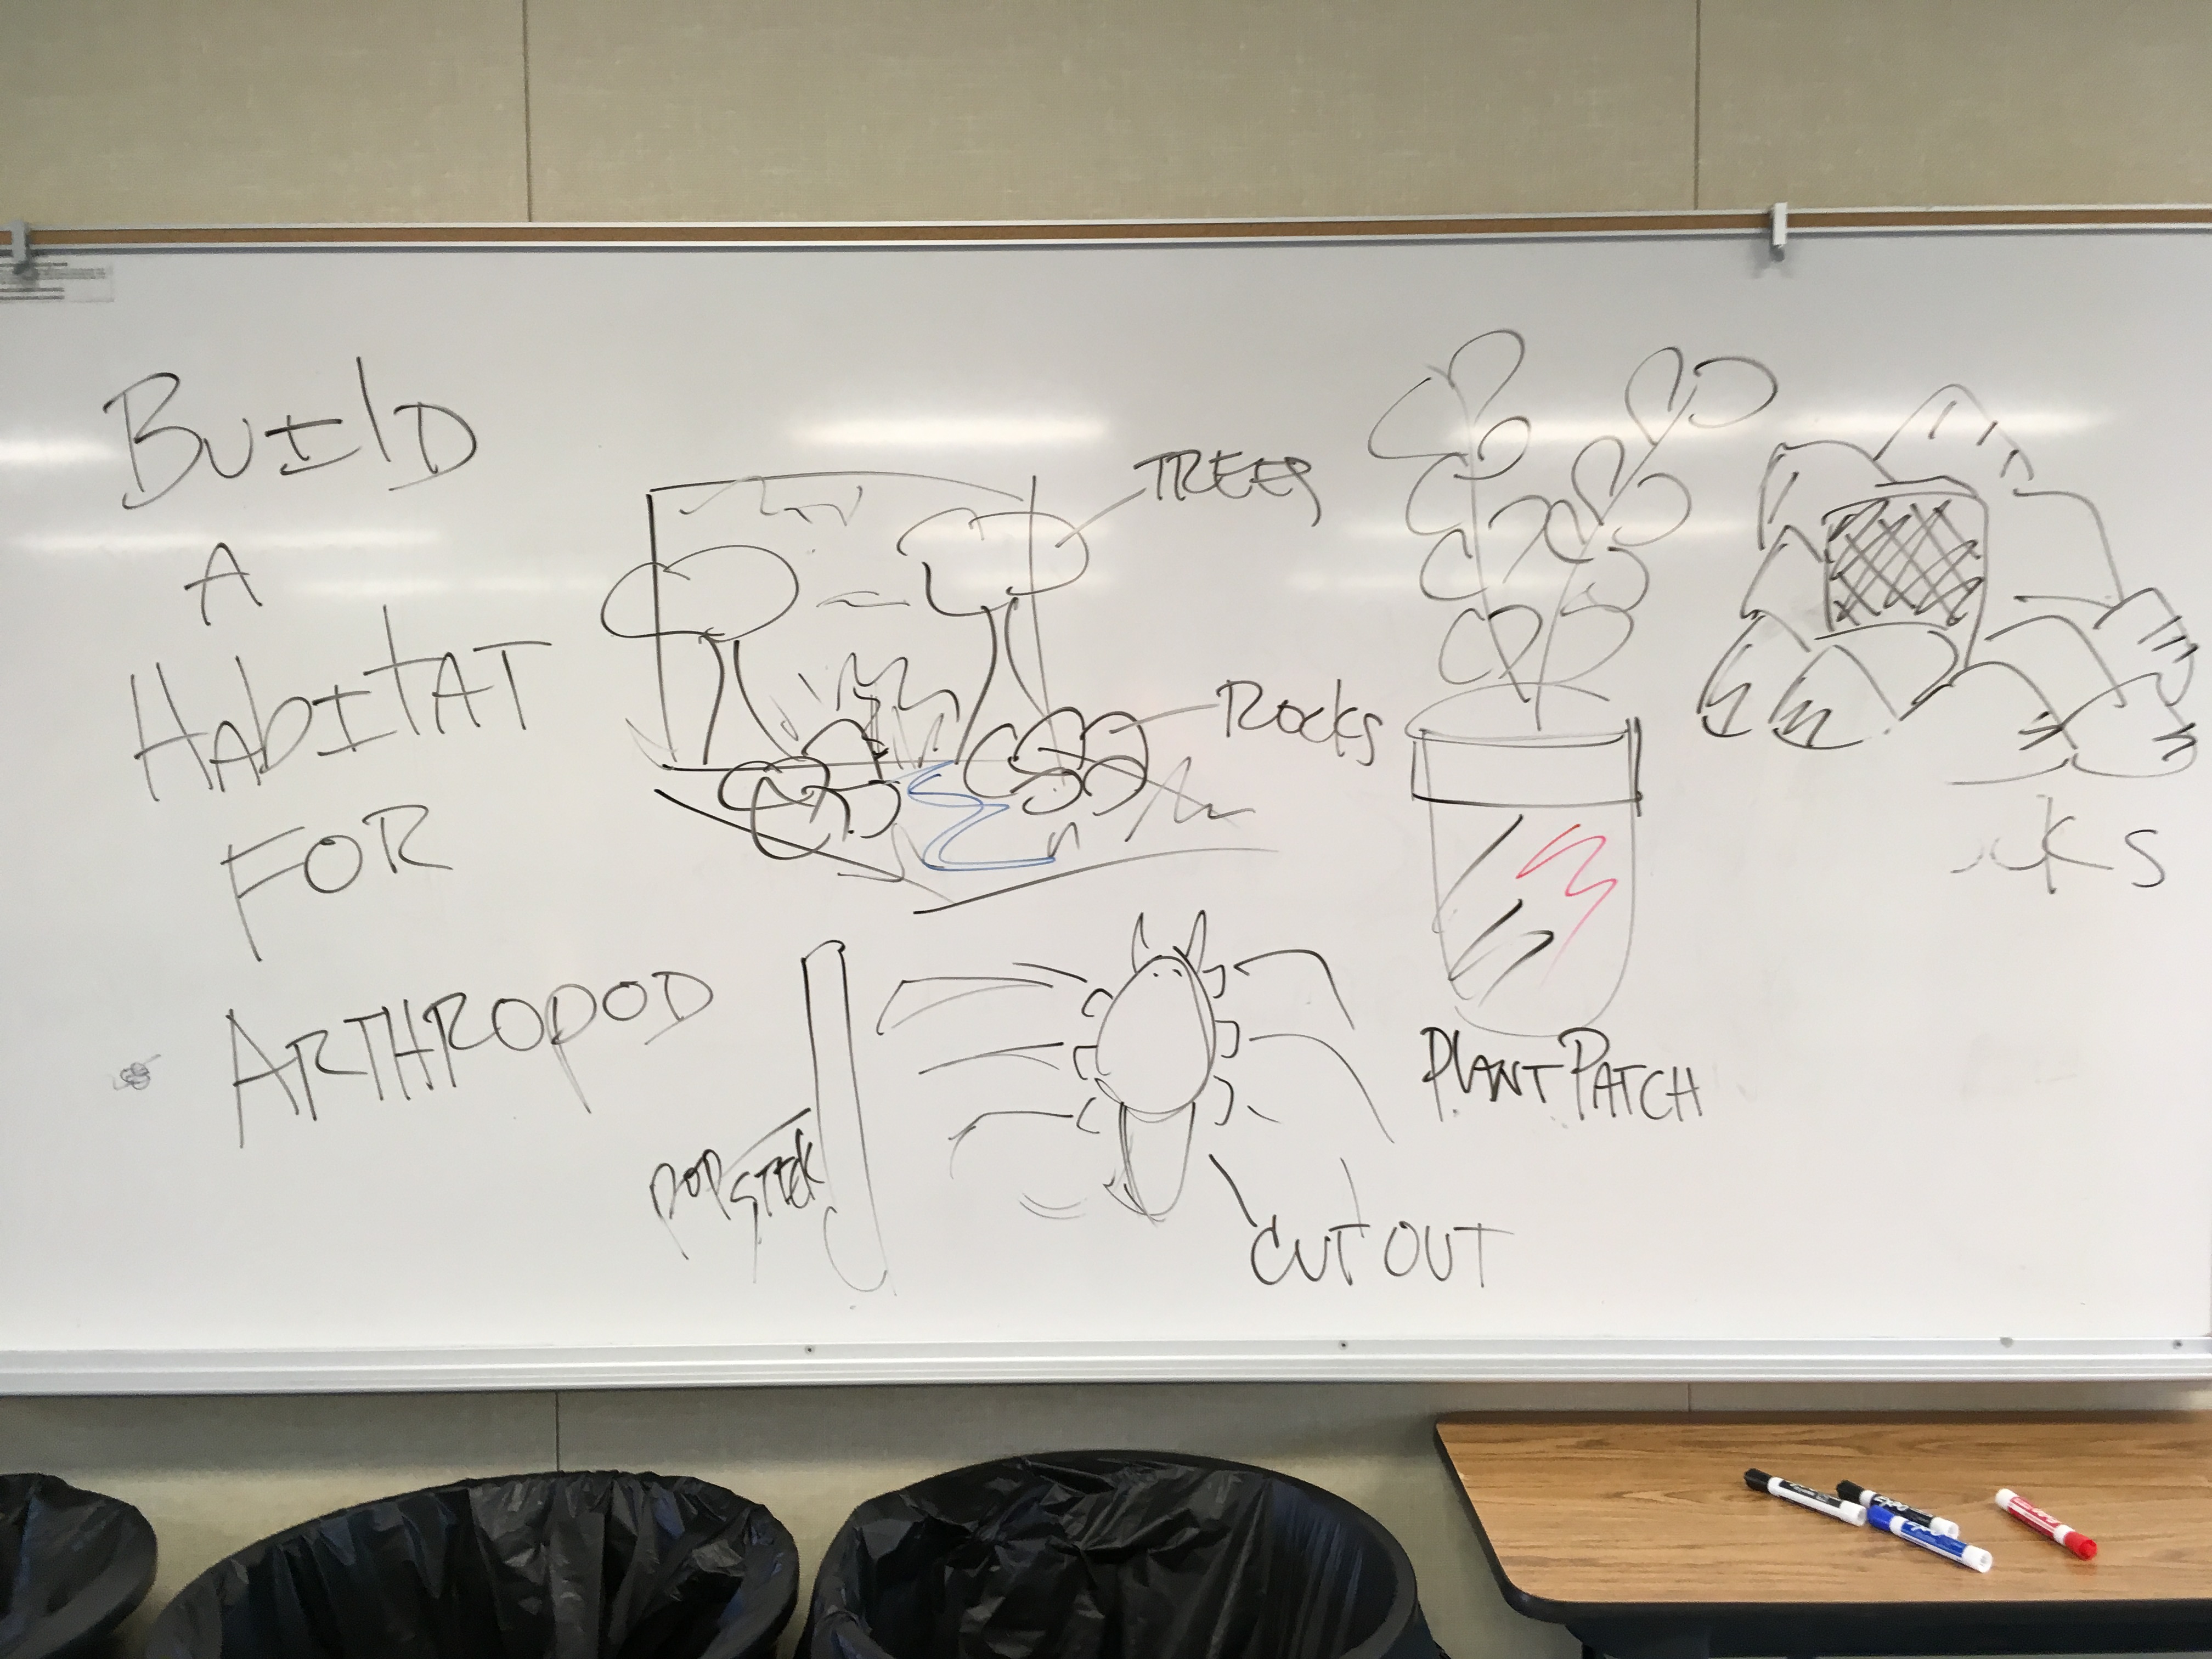 BUIlD
A
HAbITAT
FOR
ARTHROPOD
TREES
ROCKS
POP
STICK
CUT OUT
PLANT PATCH
CKS
EXPO